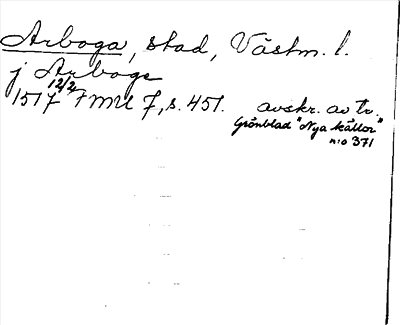 Arboga, stad, Västm. l.
j Arboge
12/2
1517 FMU 7, s. 451. avskr. av tr.
Grönblad "Nya källor"
n:o 371